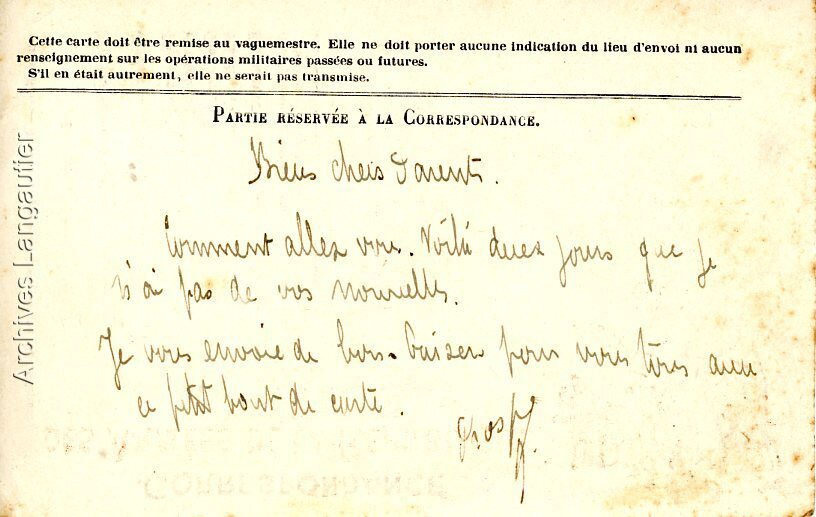 Cette carte doit être remise au vaguemestre. Elle ne doit porter aucune indication du lieu d'envoi ni aucun
renseignement sur les opérations militaires passées ou futures.
S'il en était autrement, elle ne serait pas transmise.
PARTIE RÉSERVÉE À LA CORRESPONDANCE.
Biens chers Parents.
Comment allez vous. Voilà deux jours que je
n'ai pas de vos nouvelles.
Je vous envoie de bons baisers pour vous tous avec
ce petit bout de carte.
Archives Langautier